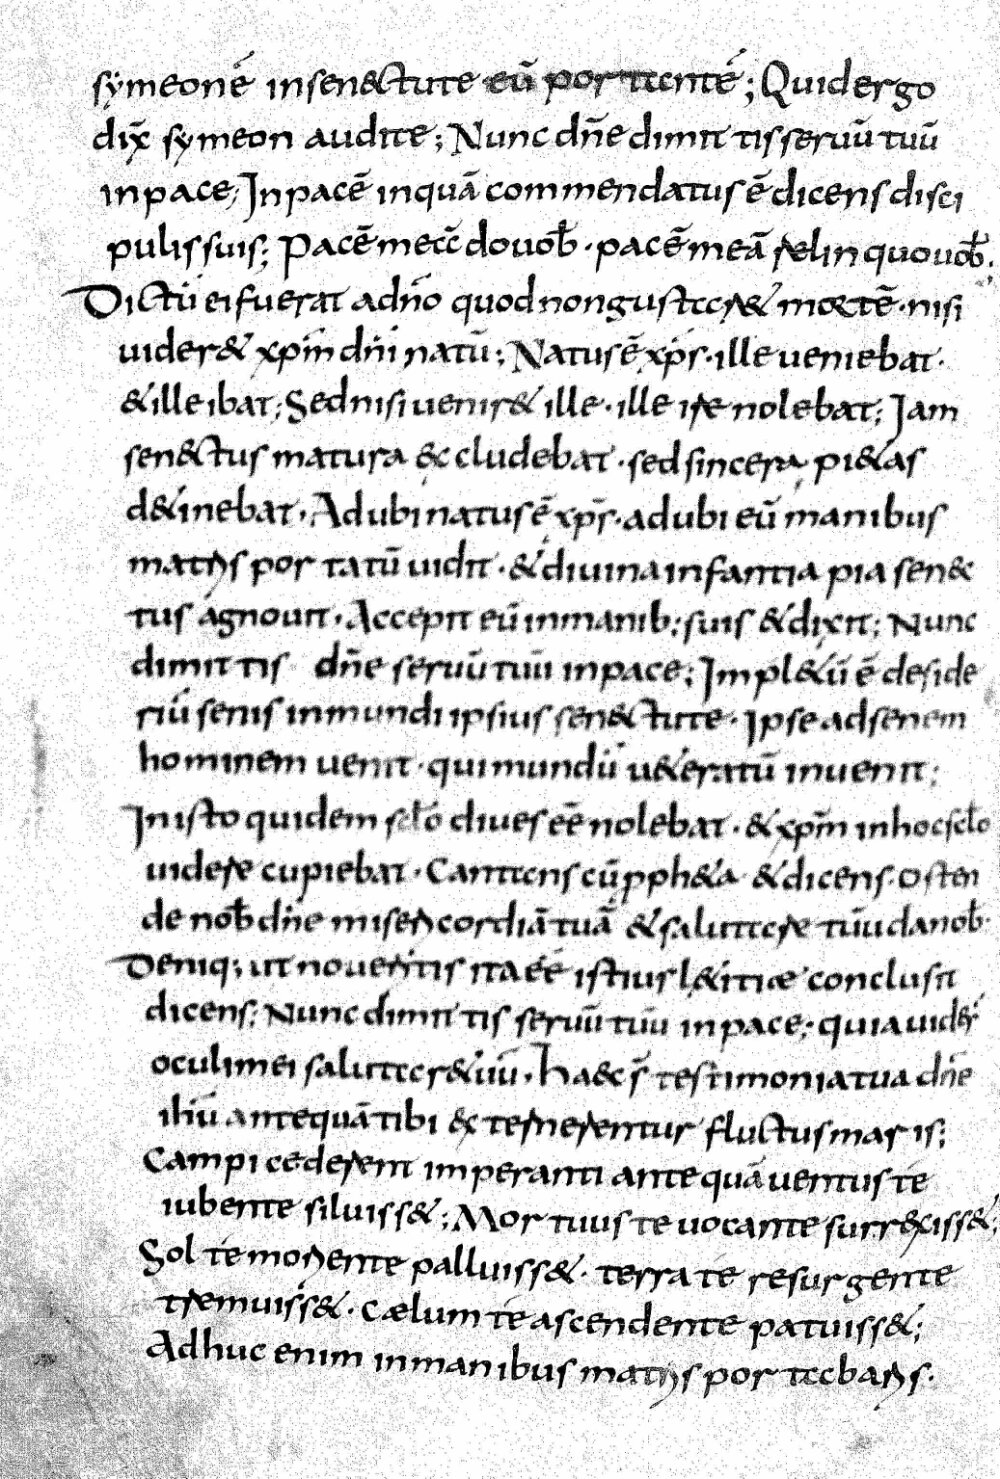 symeonē insen&ctute eū portantē; Quid ergo
dix̄ symeon audite; Nunc dn̄e dimittis seruū tuū
inpace; Inpacē inquā commendatus ē dicens disci
pulis suis; Pacē meā do uob̄ · pacē meā relinquo uob̄;
Dictū ei fuerat a dn̄o quod non gustar& mortē · nisi
uider& xp̄m dn̄i natū; Natus ē xp̄s · ille ueniebat ·
& ille ibat; Sed nisi uenir& ille · ille ire nolebat; Iam
sen&ctus matura &cludebat · sed sincera pi&as
d&inebat · Ad ubi natus ē xp̄s · ad ubi eū manibus
matris portatū uidit · & diuina infantia pia sen&c
tus agnouit · Accepit eū inmanib; suis & dixit; Nunc
dimittis dn̄e seruū tuū inpace; Impl&ū ē deside
riū senis inmundi ipsius sen&ctute · Ipse ad senem
hominem uenit · qui mundū u&eratū inuenit;
In isto quidem sc̄lo diu esē nolebat · & xp̄m in hoc sc̄lo
uidere cupiebat · Cantans cū pph&a & dicens · Osten
de nob̄ dn̄e misericordiā tuā & salutare tuū da nob̄ ·
Deniq; ut noueritis ita eē istius l&itiæ conclusit
dicens; Nunc dimittis seruū tuū inpace; quia uider̄
oculi mei salutar& uū · Haec s̄ testimonia tua dn̄e
ih̄u antequā tibi &c terrerentur fluctus maris;
Campi cederent imperanti antequā uentus te
iubente siluiss&; Mortuus te uocante surr&xiss&;
Sol te moriente palluiss& · terra te resurgente
tremuiss& · cælum te ascendente patuiss&;
Adhuc enim inmanibus matris portabaris ·